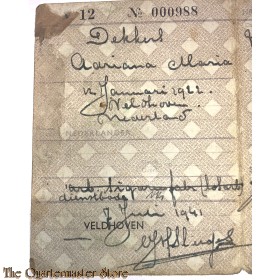 V 12 № 000988
Dekkers
Adriana Maria
12 Januari 1922.
Veldhoven.
Nederland
NEDERLANDER
arb. sigarenfabr.
dienstbode
7 Juli 1941
VELDHOVEN
The Quartermaster Store